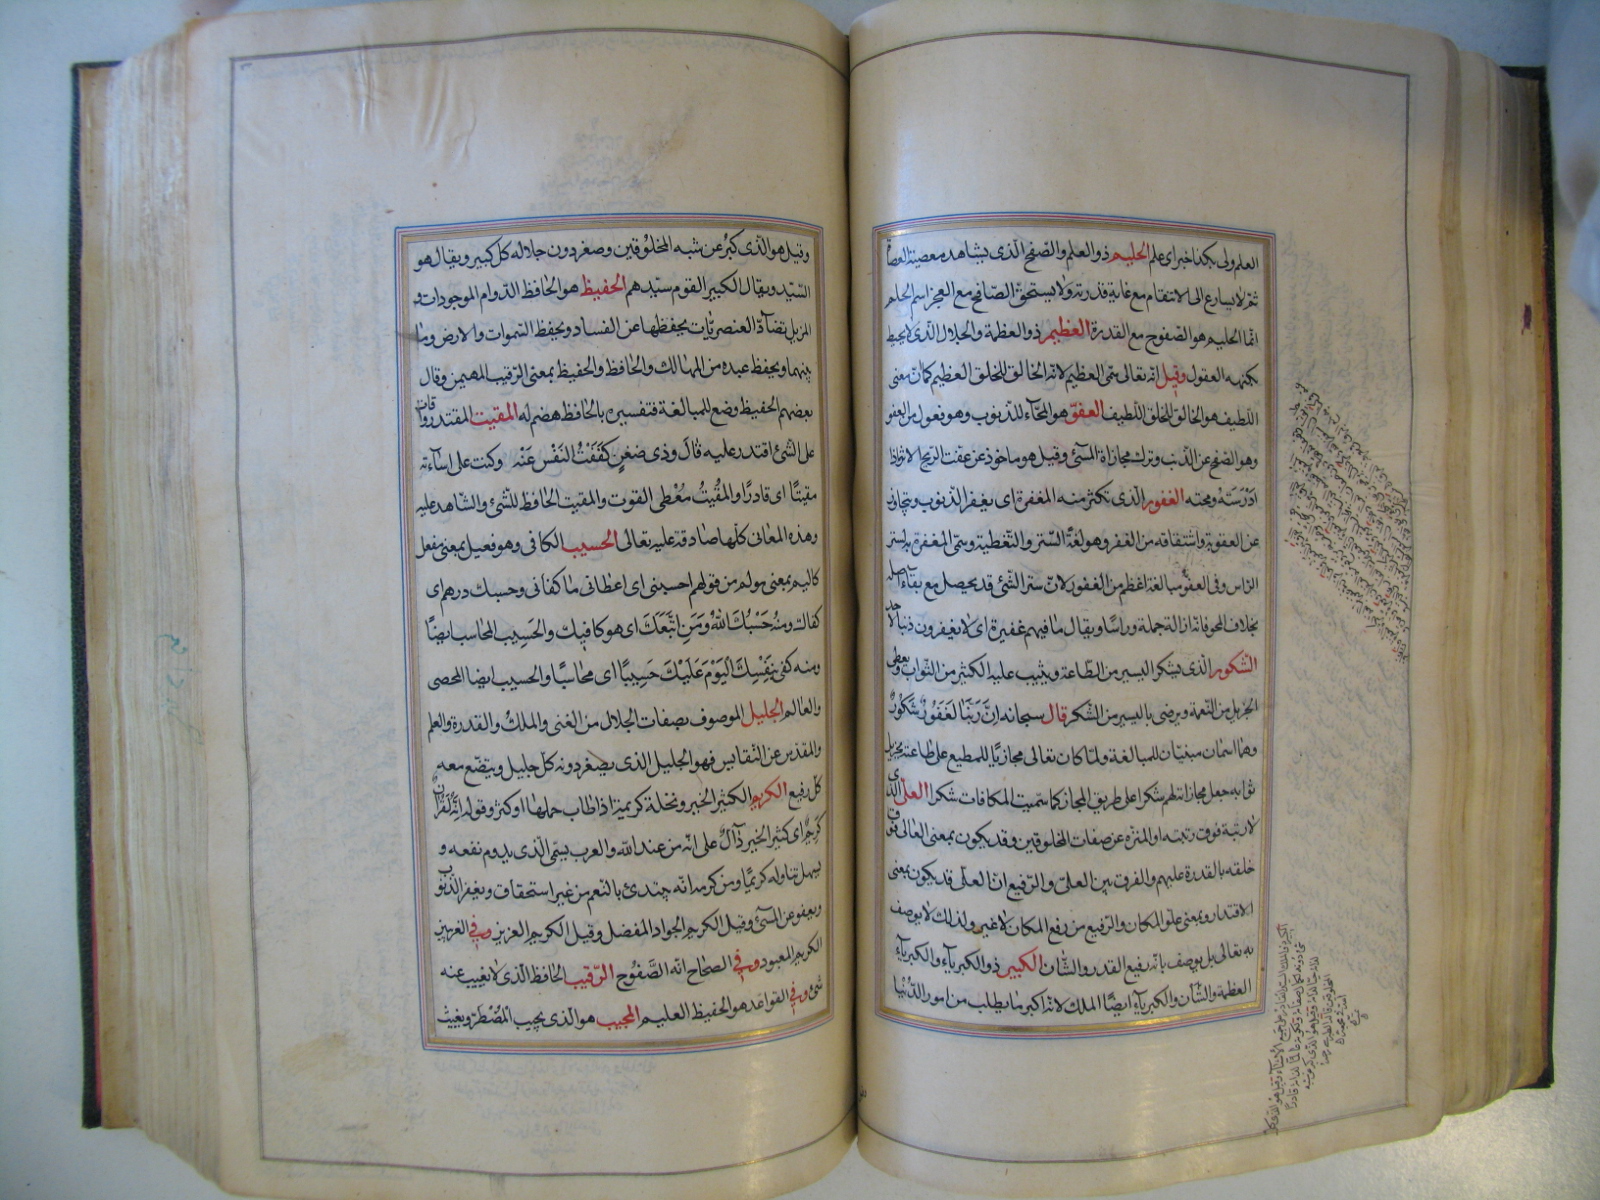 العلم ولى بكذا خبر اى علم الحليم ذو الحلم والصفح الّذى يشاهد معصية العصاة
ثمّ لا يسارع الى الانتقام مع غاية قدرته ولا يستحقّ الصّافح مع العجز اسم الحلم
انّما الحليم هو الصّفوح مع القدرة العظيم ذو العظمة والجلال الّذى لا يحيط
بكنهه العقول وقيل انّه تعالى سمّى العظيم لانّه الخالق للخلق العظيم كما انّ معنى
اللطيف هو الخالق للخلق اللّطيف العفوّ هو المحّاء للذنوب وهو فعول من العفو
وهو الصّفح عن الذّنب وترك مجازاة المسئ وقيل هو ماخوذ عن عفت الريح الاثر اذا
ادرسته ومحته الغفور الّذى تكثر منه المغفرة اى يغفر الذّنوب ويتجاوز
عن العقوبة واشتقاقه من الغفر وهو لغة السّتر والتّغطية وسمّى المغفر به لستر
الرّاس وفى العفوّ مبالغة اعظم من الغفور لانّ ستر الشّئ قد يحصل مع بقاء اصله
بخلاف المحو فانّه ازالة جملة وراسا ويقال ما فيهم غفيرة اى لا يغفرون ذنبا لاحد
الشّكور الّذى يشكر اليسير من الطّاعة ويثيب عليه الكثير من الثّواب ويعطى
الجزيل من النّعمة ويرضى باليسير من الشّكر قال سبحانه انّ ربّنا لغفور شكور
وهما اسمان مبنيّان للمبالغة ولمّا كان تعالى مجازيا للمطيع على طاعته بجزيل
ثوابه جعل مجازاته لهم شكرا على طريق المجاز كما سمّيت المكافات شكرا العلىّ الّذى
لا رتبة فوق رتبته او المنزّه عن صفات المخلوقين وقد يكون بمعنى العالى فوق
خلقه بالقدرة عليهم والفرق بين العلىّ والرّفيع انّ العلىّ قد يكون بمعنى
الاقتدار وبمعنى علوّ المكان والرّفيع من رفع المكان لا غير ولذلك لا يوصف
به تعالى بل يوصف بانّه رفيع القدر والشّان الكبير ذو الكبرياء والكبرياء
العظمة والشّأن والكبرياء ايضا الملك لانّه اكبر ما يطلب من امور الدّنيا
وقيل هو الّذى كبر عن شبه المخلوقين وصغر دون جلاله كلّ كبير ويقال هو
السّيّد ويقال لكبير القوم سيّدهم الحفيظ هو الحافظ لدوام الموجودات و
المزيل تضادّ العنصريّات بحفظها عن الفساد ويحفظ السّموات والارض وما
بينهما ويحفظ عبده من المهالك والحافظ والحفيظ بمعنى الرّقيب المهيمن وقال
بعضهم الحفيظ وضع للمبالغة فتفسيره بالحافظ هضم له المقيت المقتدر واقات
على الشئ اقتدر عليه قال وذى ضغن كففت النّفس عنه وكنت على اساءته
مقيتا اى قادرا والمقيت معطى القوت والمقيت الحافظ للشّئ والشّاهد عليه
وهذه المعانى كلّها صادقة عليه تعالى الحسيب الكافى وهو فعيل بمعنى مفعل
كاليم بمعنى مولم من قولهم احسبنى اى اعطانى ما كفانى وحسبك درهم اى
كفاك ومنه حسبك اللّه ومن اتّبعك اى هو كافيك والحسيب المحاسب ايضا
ومنه كفى بنفسك اليوم عليك حسيبا اى محاسبا والحسيب ايضا المحصى
والعالم الجليل الموصوف بصفات الجلال من الغنى والملك والقدرة والعلم
والمقدّس عن النّقايص فهو الجليل الذى يصغر دونه كلّ جليل ويتّضع معه
كلّ رفيع الكريم الكثير الخير ونخلة كريمة اذا طاب حملها او كثر وقوله انّه لقران
كريم اى كثير الخير دالّ على انّه من عند اللّه والعرب يسمّى الّذى يدوم نفعه و
يسهل تناوله كريما ومن كرمه انّه يبتدئ بالنّعم من غير استحقاق ويغفر الذّنوب
ويعفو عن المسئ وقيل الكريم الجواد المفضل وقيل الكريم العزيز وفى الغريبين
الكريم المعبود وفى الصّحاح انّه الصّفوح الرّقيب الحافظ الّذى لا يغيب عنه
شئ وفى القواعد هو الحفيظ العليم المجيب هو الذى يجيب المضطرّ ويغيث